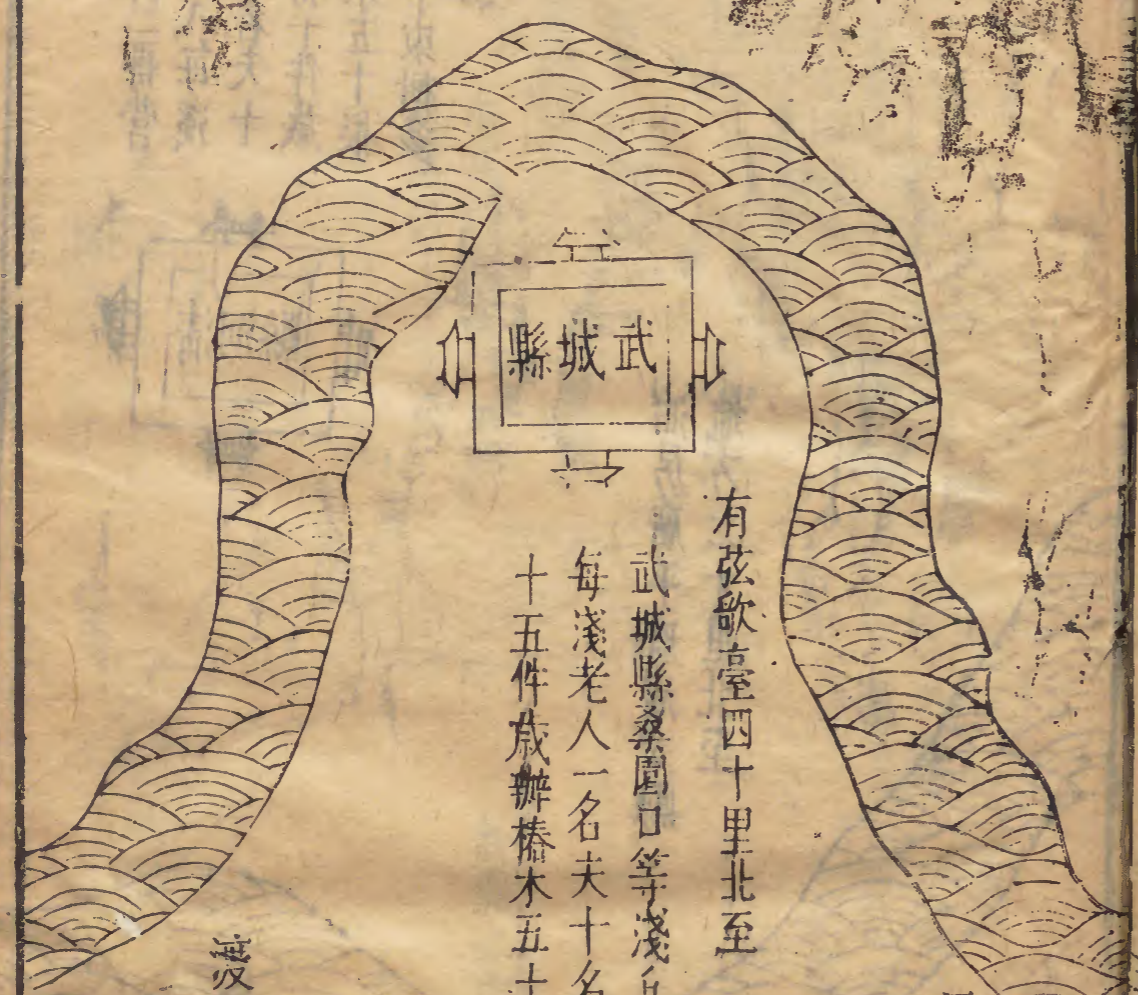 武城縣
有弦歌臺四十里北至
武城縣桑園口等淺
每淺老人一名夫十名
十五件歲辦椿木五十
渡